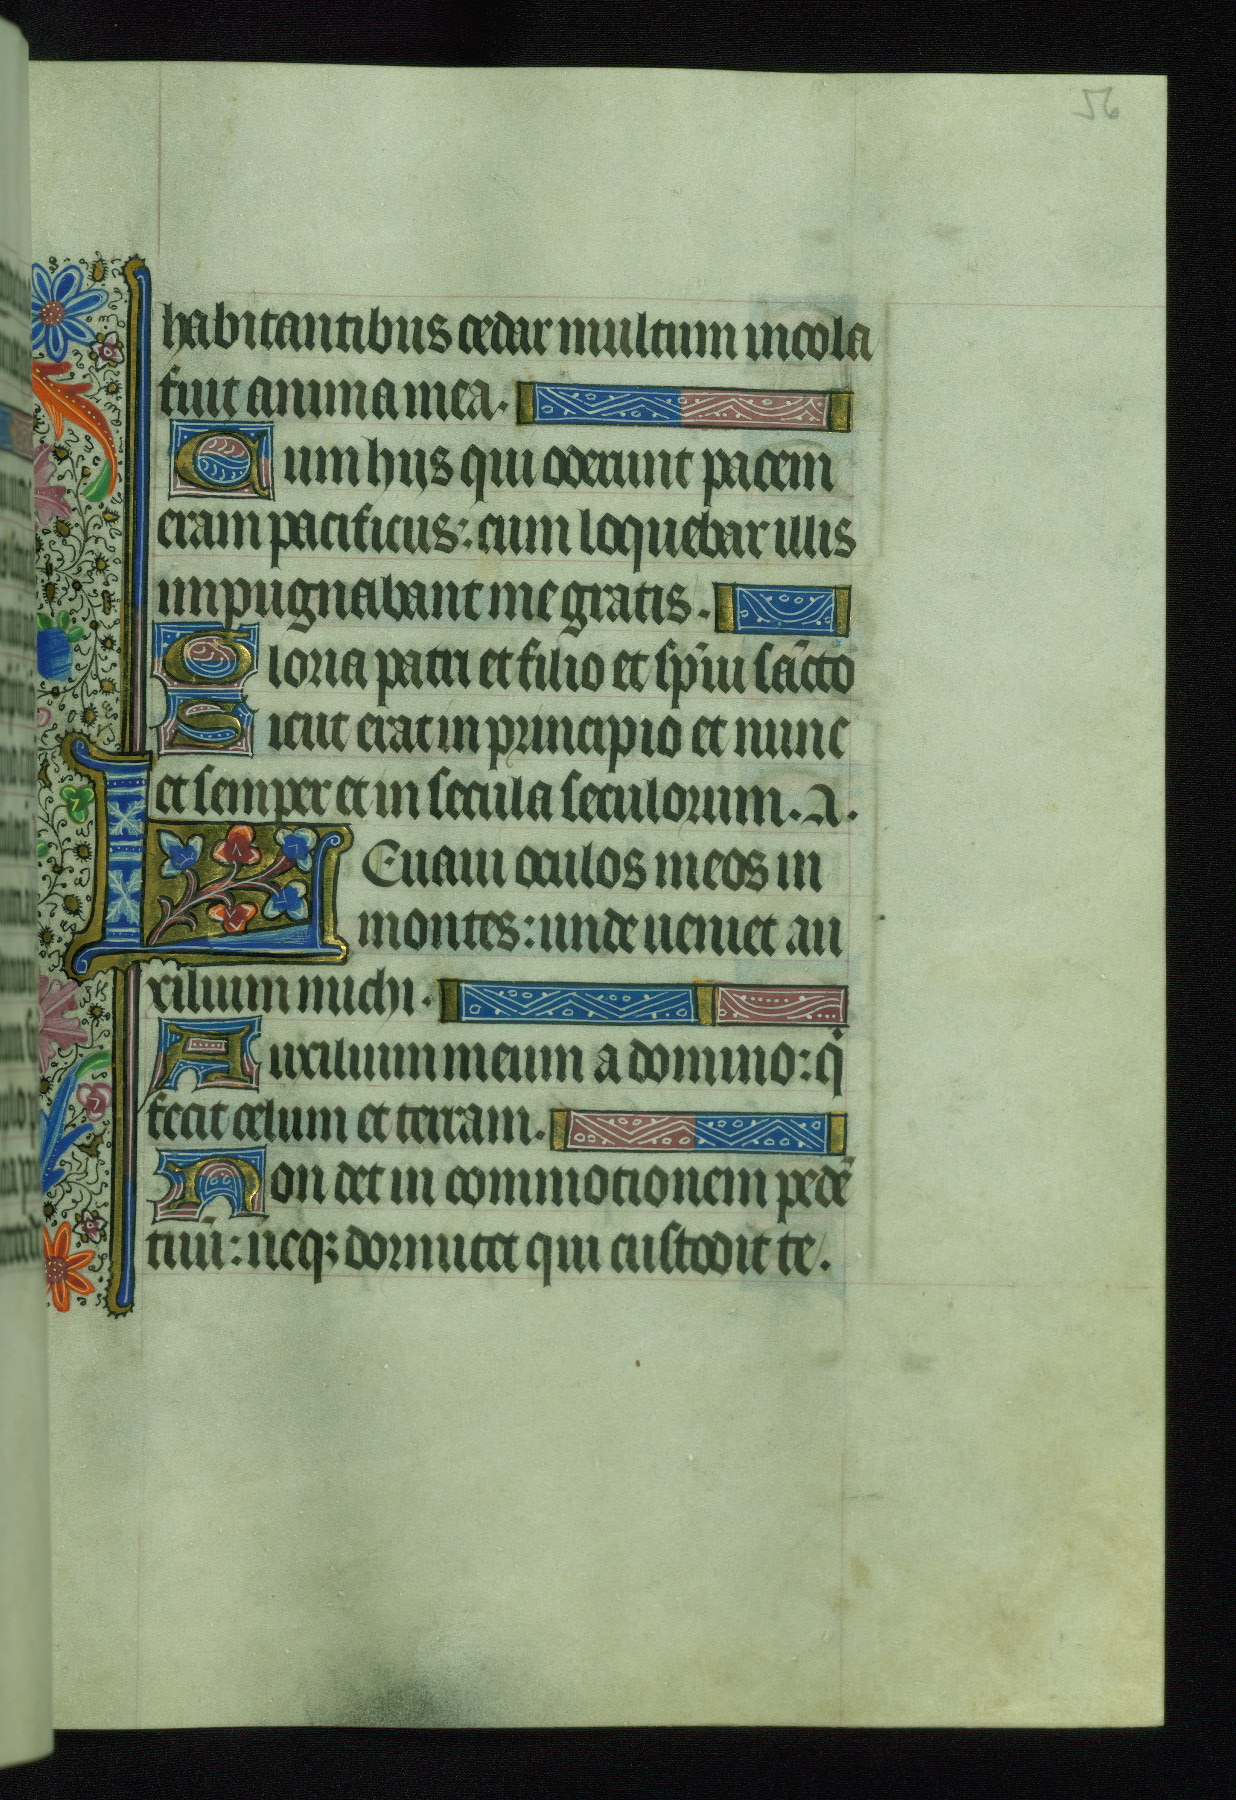 habitantibus cedar multum incola
fuit anima mea.
Cum hiis qui oderunt pacem
eram pacificus: cum loquebar illis
inpugnabant me gratis.
Gloria patri et filio et sp̄iu sācto
Sicut erat in principio et nunc
et semper et in secula seculorum. A.
LEuaui oculos meos in
montes: unde ueniet au
xilium michi.
Auxilium meum a domino: q̄
fecit celum et terram.
Non det in commotionem pedē
tuū: neq; dormitet qui custodit te.